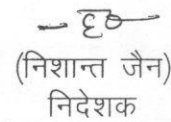 (निशान्त जैन)
निदेशक